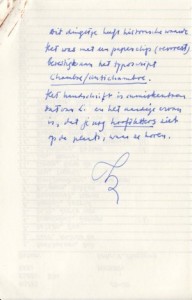 Dit dingetje heeft historische waarde.
Het was met een paperclip (verroest)
bevestigd aan het typoscript
Chambre/Antichambre.
Het handschrift is onmiskenbaar
en het aardige
is, dat je nog hoofdletters ziet
op de plaats, waar ze horen.